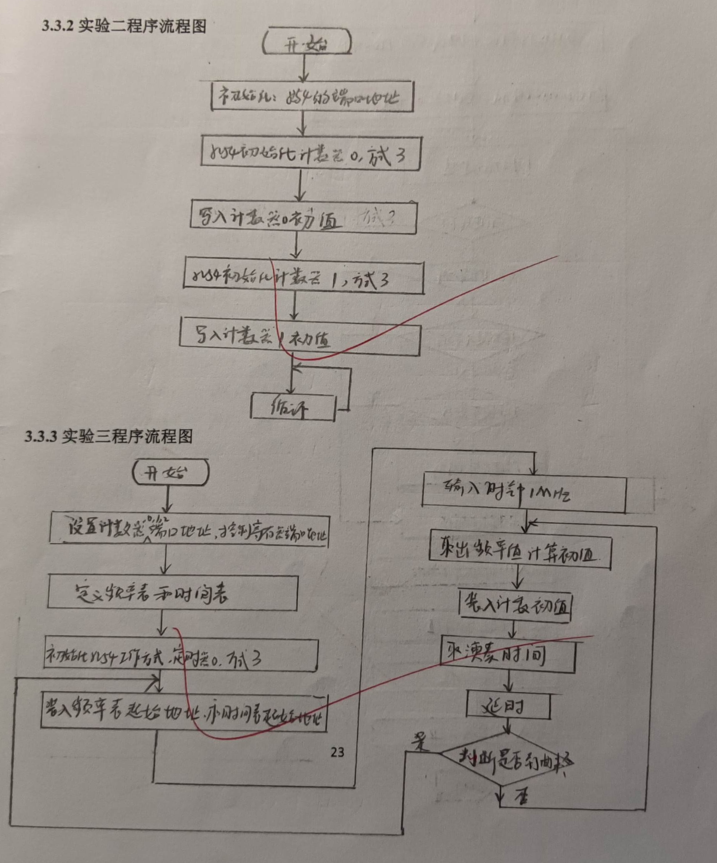 3.3.2 实验二程序流程图
开始
初始化：8254的端口地址
8254初始化计数器0，方式3
写入计数器0初值 方式3
8254初始化计数器1，方式3
写入计数器1初值
循环
3.3.3 实验三程序流程图
开始
设置计数器0,1,2端口地址，控制寄存器端口地址
定义频率表和时间表
初始化8254工作方式，定时器0，方式3
装入频率表起始地址，和时间表起始地址
输入时钟1MHz
取出频率值计算初值
装入计数初值
取演奏时间
延时
判断是否到曲终
是
否
23